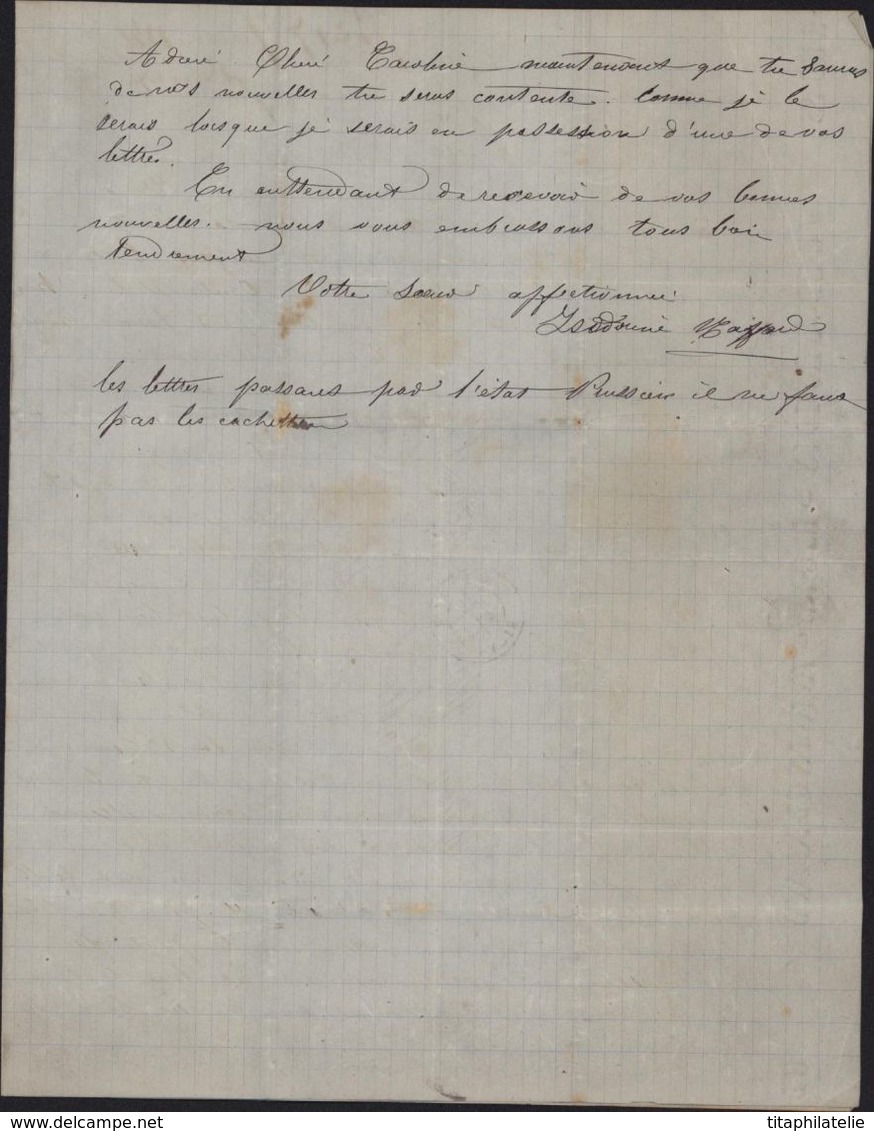 Adieu Chere Caroline maintenant que tu auras
de nos nouvelles tu seras contente. Comme je le
serais lorsque je serais en possession d'une de vos
lettres.
En attendant de recevoir de vos bonnes
nouvelles. nous vous embrassons tous bien
tendrement
Votre soeur affectionnée
les lettres passans par l'état Prussien il ne faut
pas les cacheter
www.delcampe.net
titaphilatelie